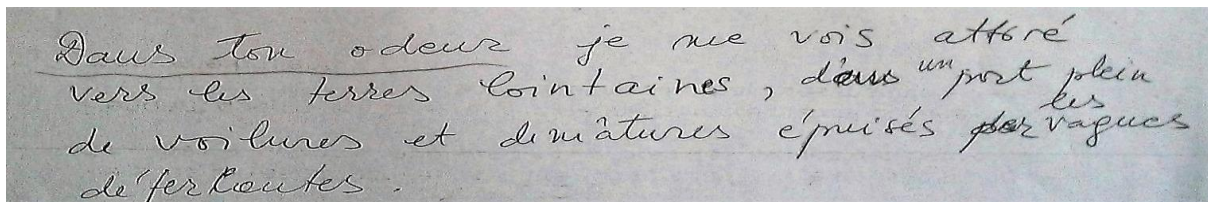 Dans ton odeur je me vois attoré
vers les terres lointaines, dans un port plein
de voilures et de mâtures épuisés par les vagues
déferlantes.